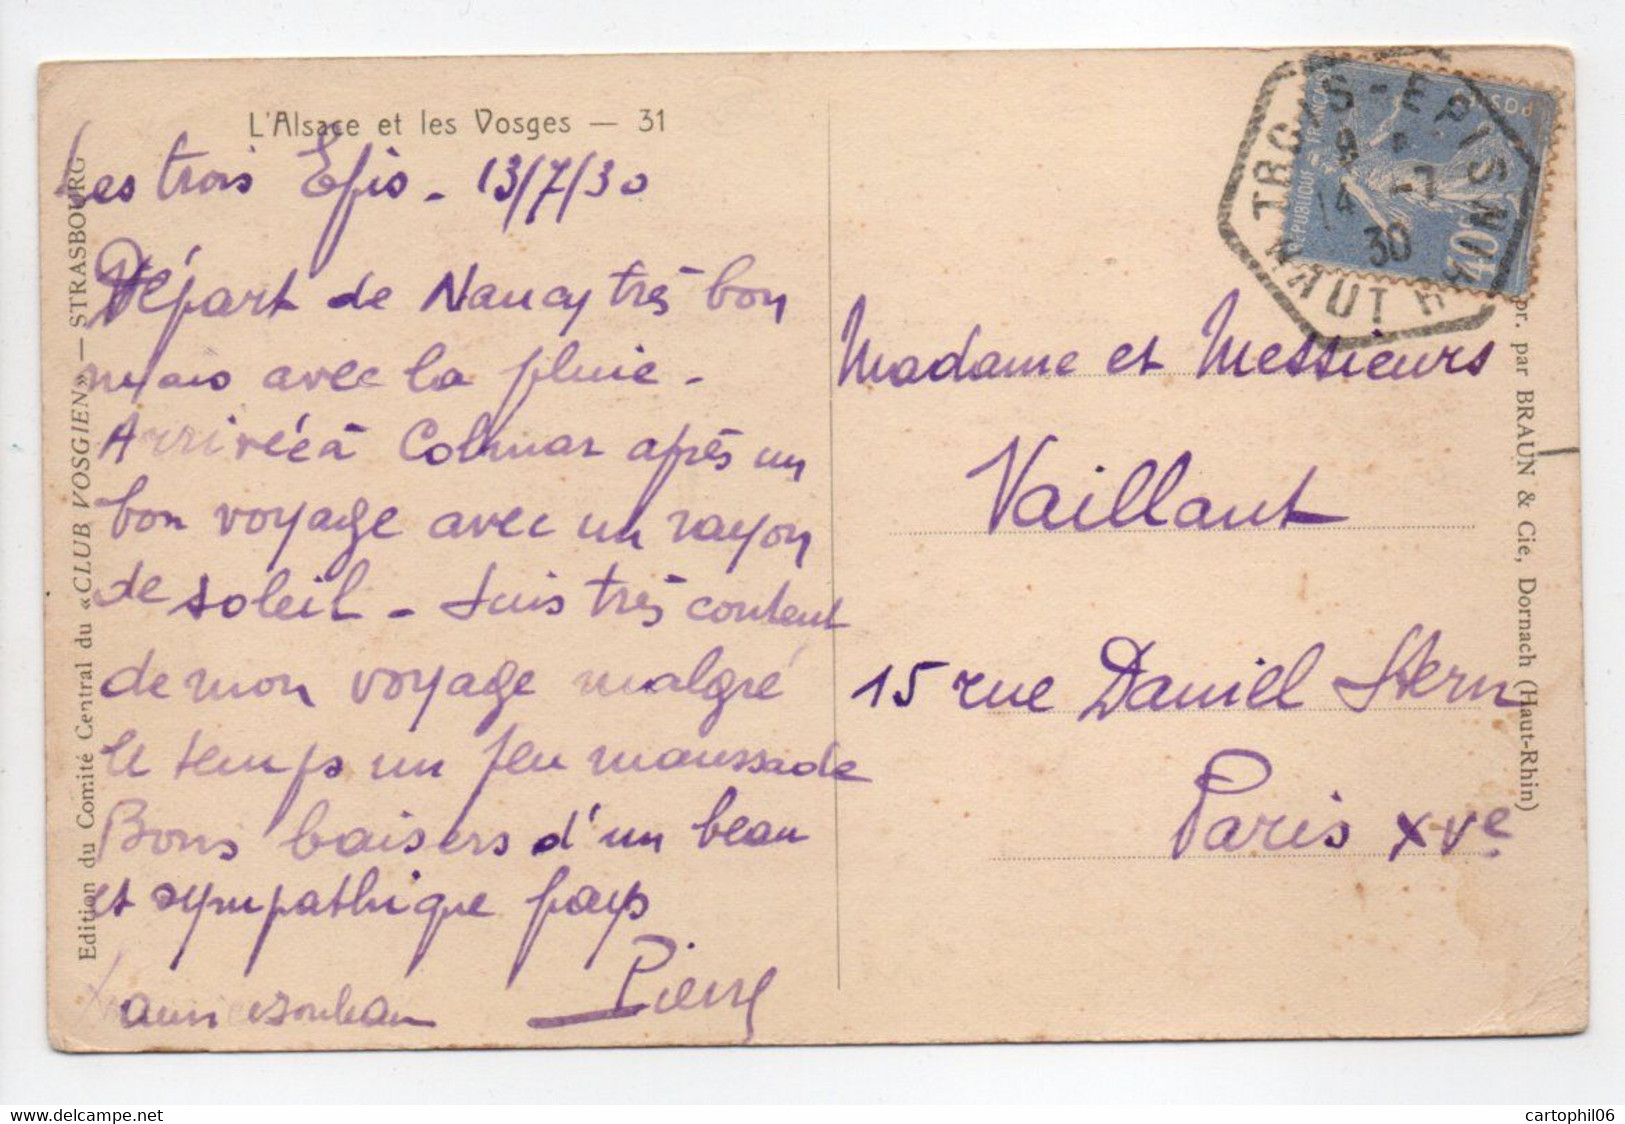 L'Alsace et les Vosges — 31
Les trois Epis - 13/7/30
Départ de Nancy très bon
mais avec la pluie -
Arrivée à Colmar après un
bon voyage avec un rayon
de soleil - Suis très content
de mon voyage malgré
le temps un peu maussade
Bons baisers d'un beau
et sympathique pays
Pierre
Edition du Comité Central du «CLUB VOSGIEN» — STRASBOURG
TROIS-EPIS
HT RHIN
14 -7
30
POSTES
REPUBLIQUE FRANÇAISE
40c
Madame et Messieurs
Vaillant
15 rue Daniel Stern
Paris XVe
pr. par BRAUN & Cie, Dornach (Haut-Rhin)
cartophil06